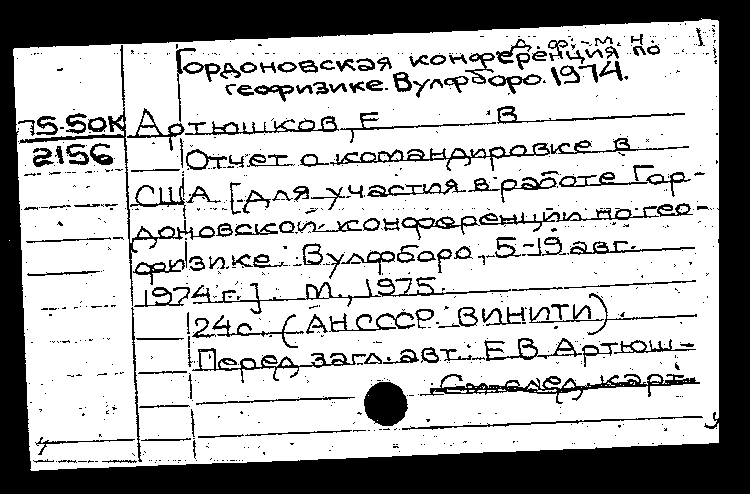 д. ф.-м. н. 1
Гордоновская конференция по
геофизике. Вулфборо. 1974.
75-50К Артюшков, Е В
2156 Отчет о командировке в
США [для участия в работе Гор-
доновской конференции по гео-
физике. Вулфборо, 5-19 авг.
1974 г.]. М., 1975.
24 с. (АН СССР. ВИНИТИ).
Перед загл. авт.: Е В Артюш-
См. след. карт.